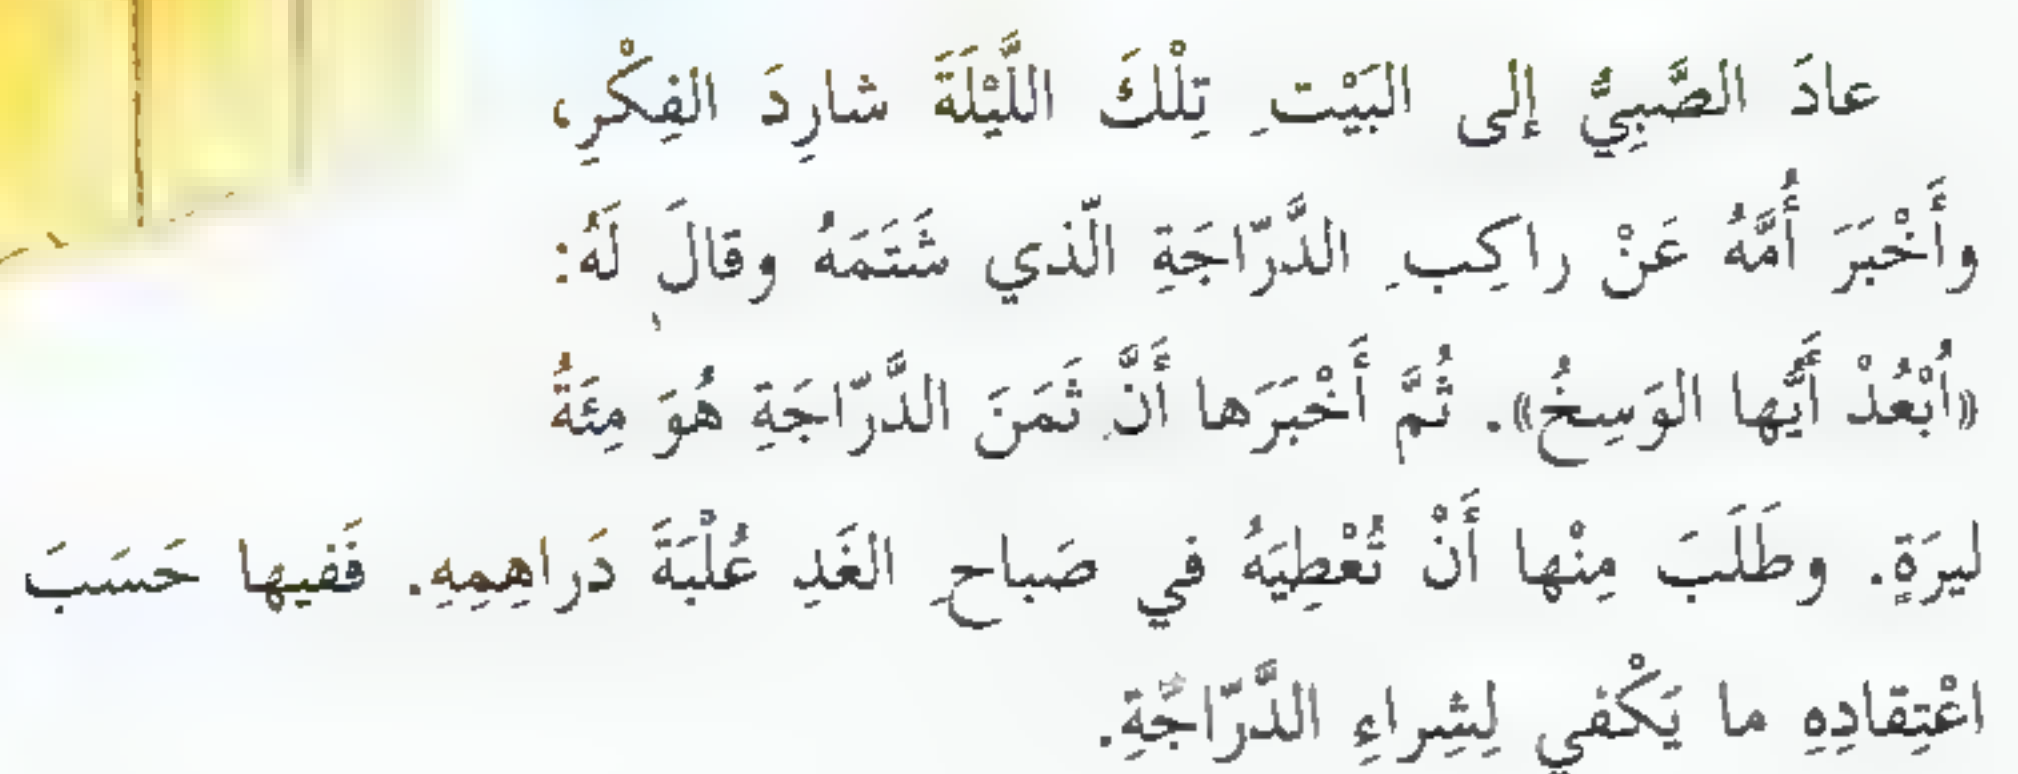 عادَ الصَّبِيُّ إلى البَيْتِ تِلْكَ اللَّيْلَةَ شارِدَ الفِكْرِ،
وأَخْبَرَ أُمَّهُ عَنْ راكِبِ الدَّرّاجَةِ الّذي شَتَمَهُ وقالَ لَهُ:
«اُبْعُدْ أَيُّها الوَسِخُ». ثُمَّ أَخْبَرَها أَنَّ ثَمَنَ الدَّرّاجَةِ هُوَ مِئَةُ
ليرَةٍ. وطَلَبَ مِنْها أَنْ تُعْطِيَهُ في صَباحِ الغَدِ عُلْبَةَ دَراهِمِهِ. فَفيها حَسَبَ
اعْتِقادِهِ ما يَكْفي لِشِراءِ الدَّرّاجَةِ.